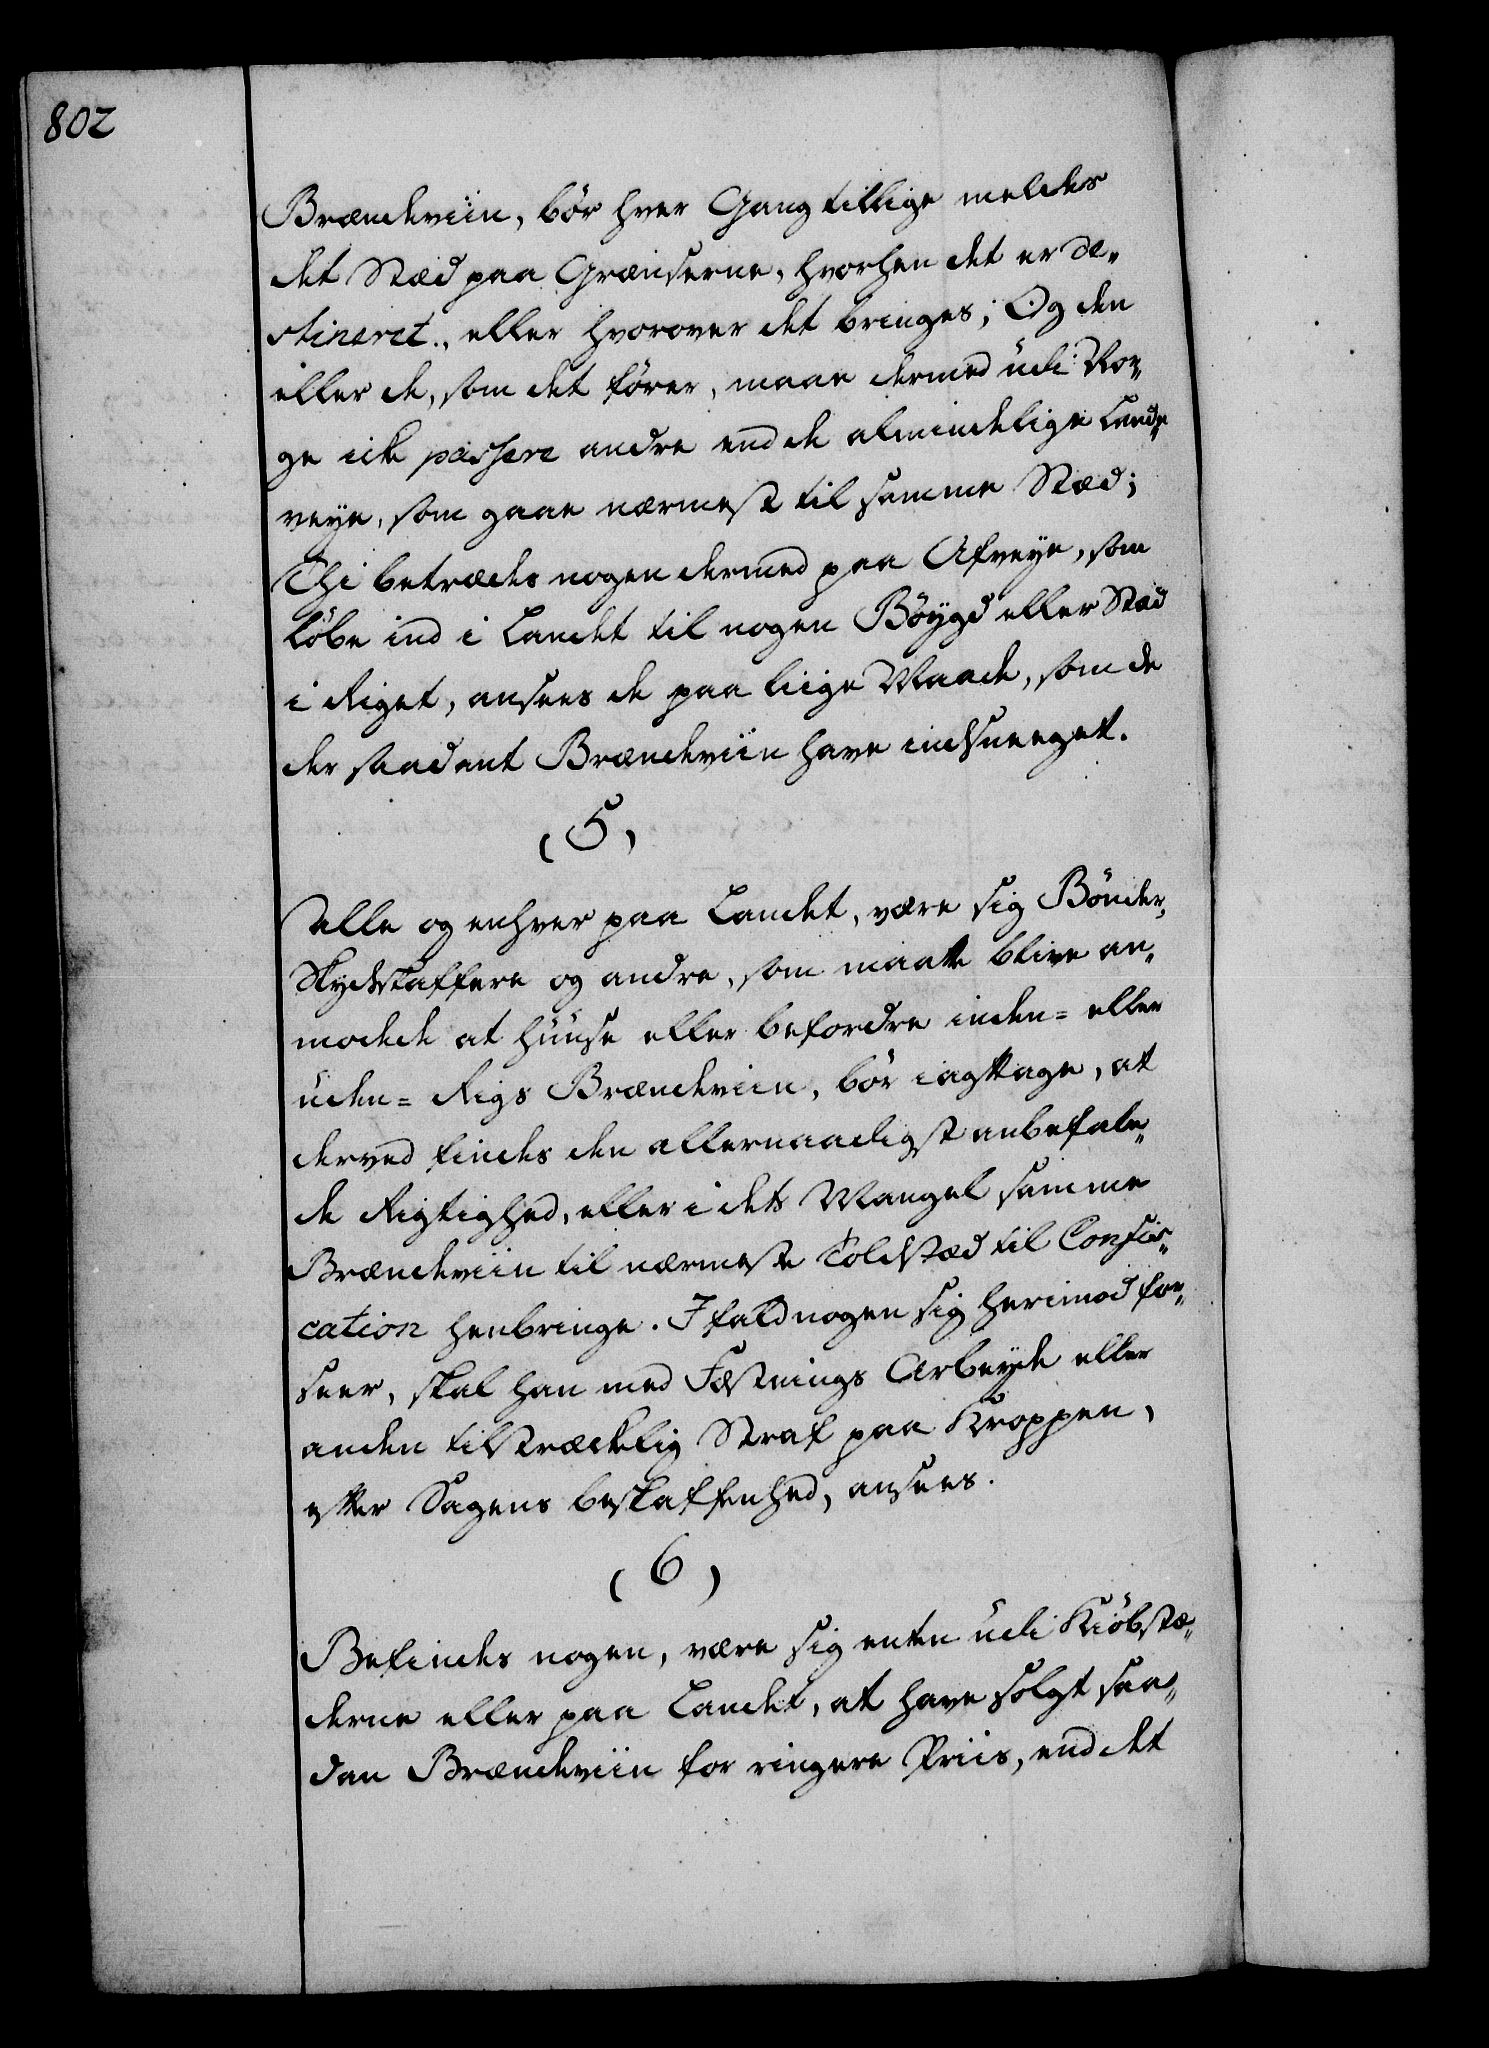 802
Brændeviin, bör hver Gang tillige meldes
det Stæd paa Grændserne, hvorhen det er de„
stineret., eller hvorover det bringes; Og den
eller de, som det fører, maae dermed udi Nor„
ge ick passere andre end de almindelige Land„
veye, som gaae nærmest til samme Stæd;
Thi betrædes nogen dermed paa Afveye, som
løbe ind i Landet til nogen Böygd eller Stæd
i Riget, ansees de paa liige Maade, som de
der saadant Brændeviin have indsneeget.
(5)
Alle og enhver paa Landet, være sig Bønder,
Skydskaffere og andre, som maatte blive an„
modede at huuse eller befordre inden= eller
uden= Rigs Brændeviin, bör iagttage, at
derved findes den allernaadigst anbefale„
de Rigtighed, eller i dets Mangel samme
Brændeviin til nærmeste Toldstæd til Confis„
cation henbringe. Ifald nogen sig herimod for„
seer, skal han med Fæstnings Arbeyde eller
anden tilstrækkelig Straf paa Kroppen,
efter Sagens beskaffenhed, ansees.
(6)
Befindes nogen, være sig enten udi Kiöbstæ„
derne eller paa Landet, at have solgt saa„
dan Brændeviin for ringere Priis, end det